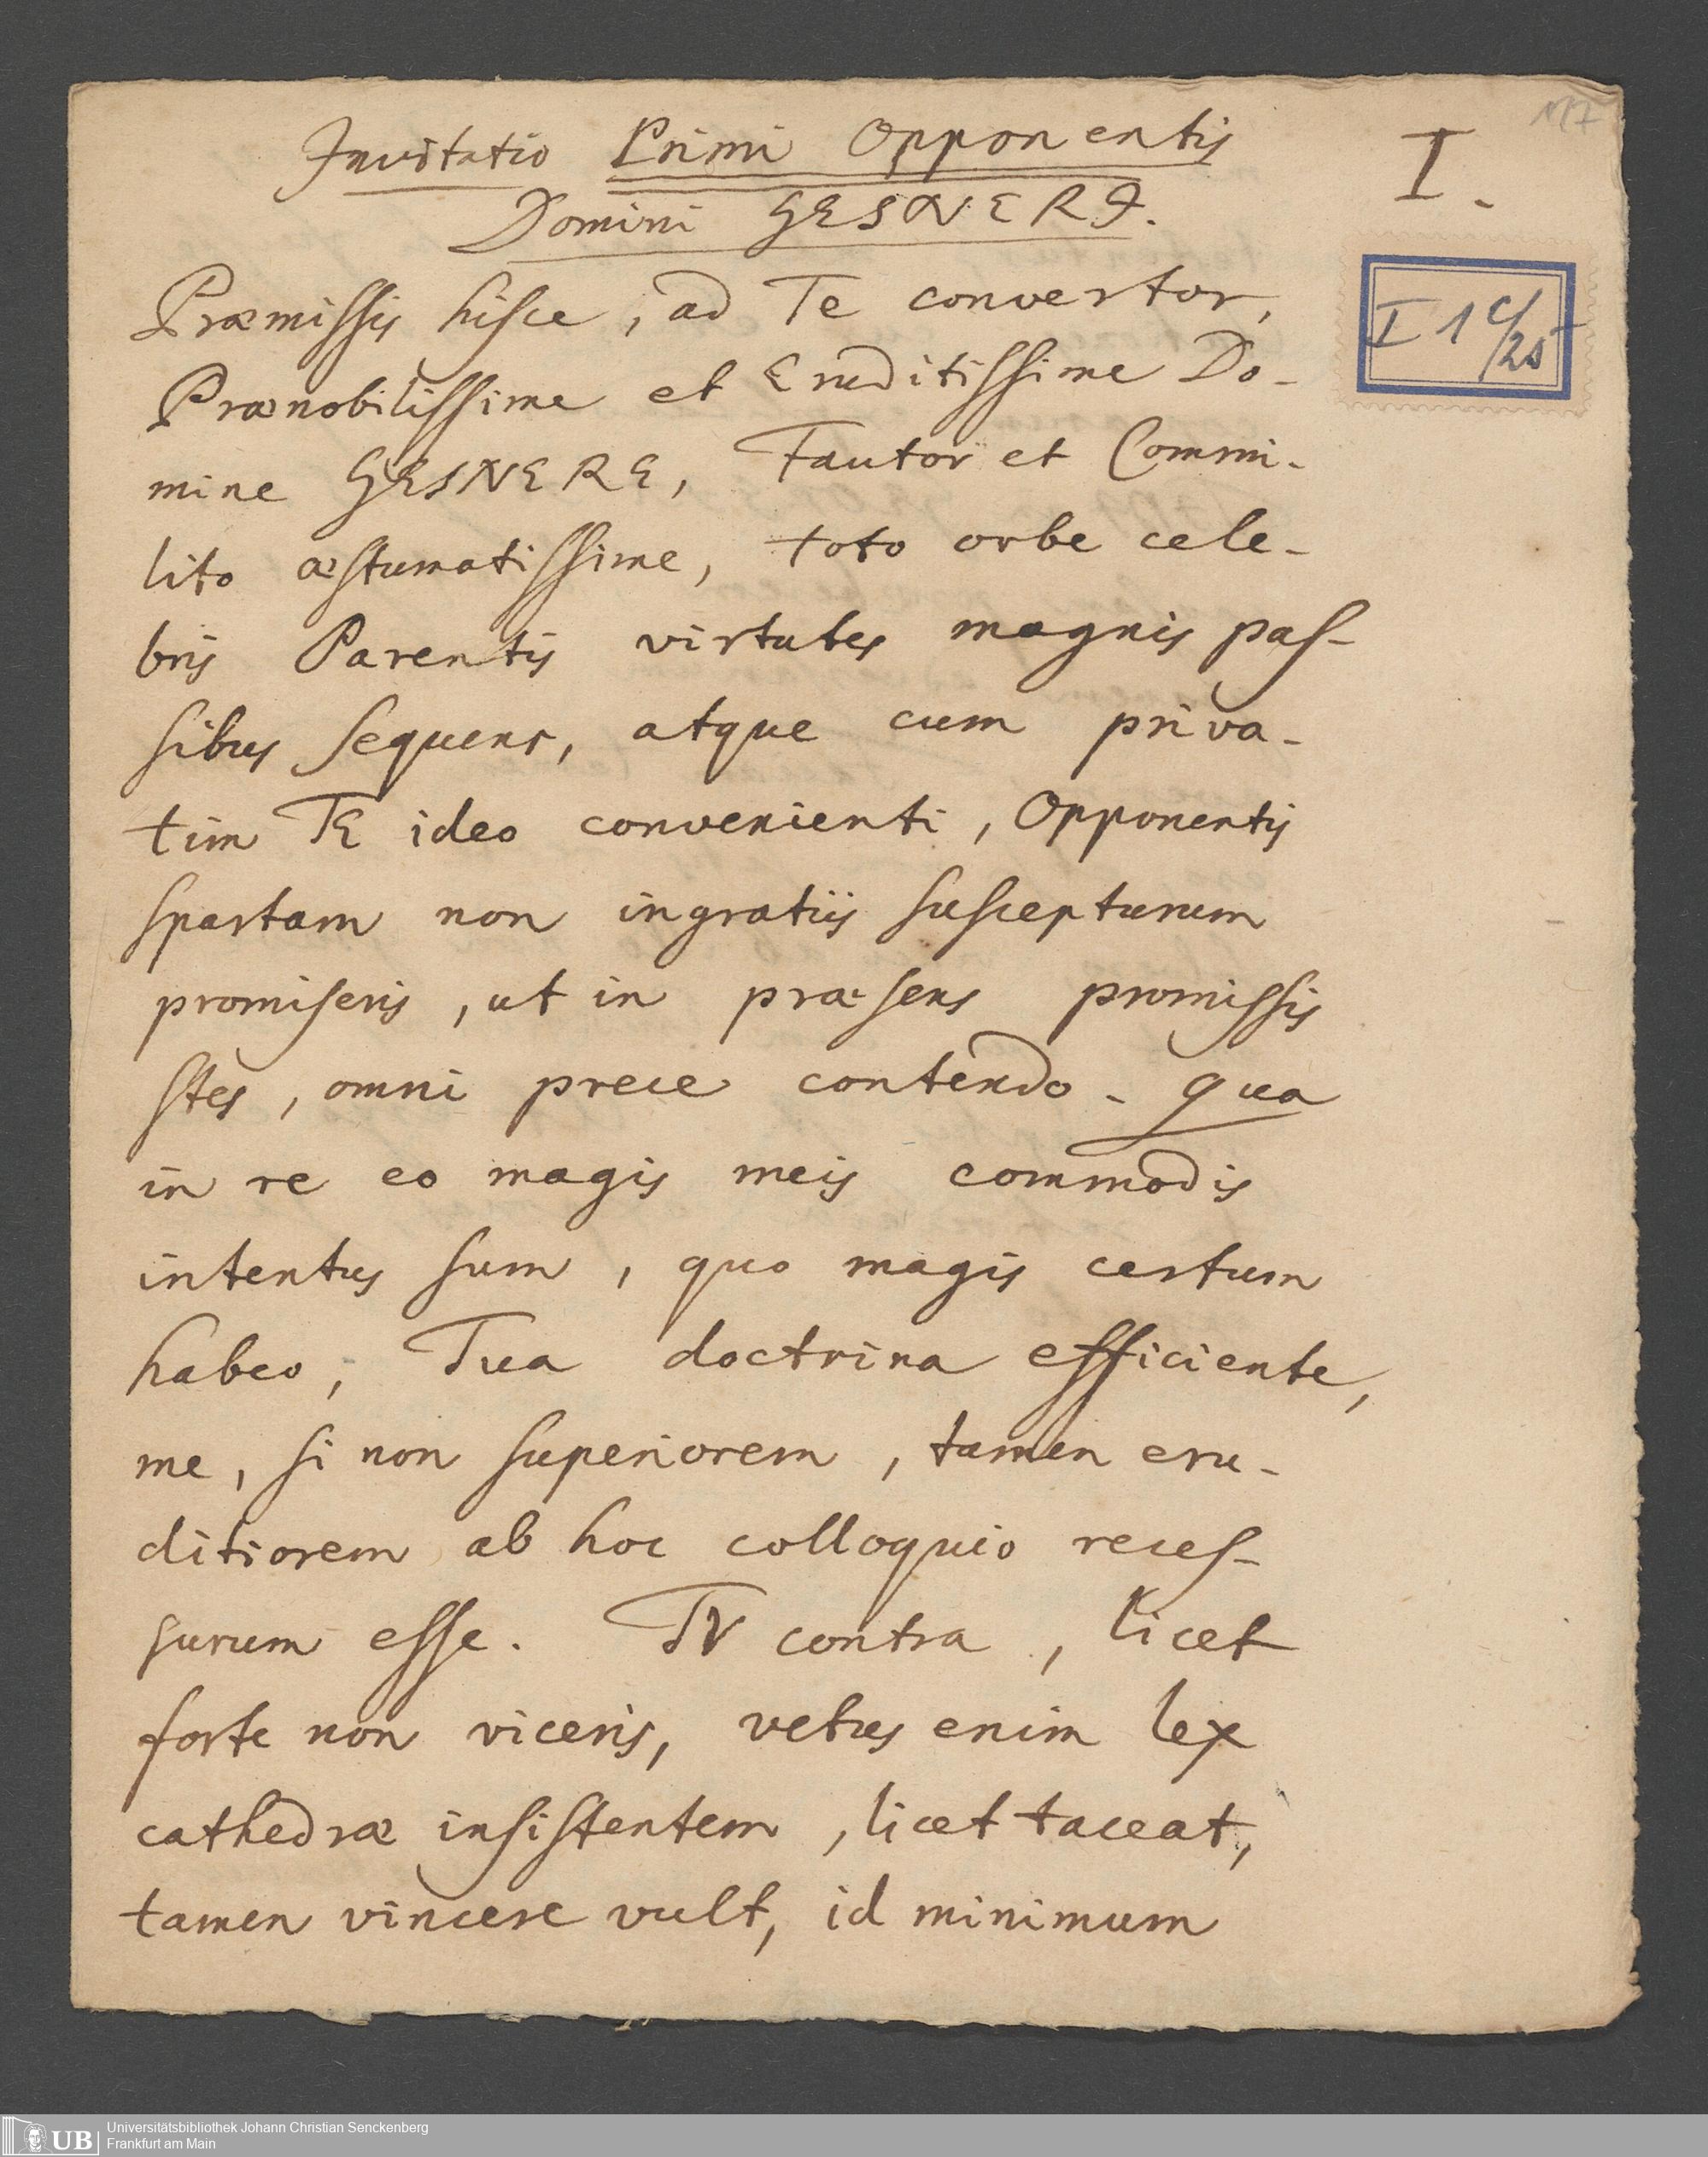 Invitatio Primi Opponentis
I.
Domini GESNERI.
Præmissis hisce, ad Te convertor,
I 1 c/25
Prænobilissime et Eruditissime Do-
mine GESNERE, Fautor et Commi-
lito æstumatissime, toto orbe cele-
bris Parentis virtutes magnis pas-
sibus sequens, atque cum priva-
tim TE ideo convenienti, Opponentis
spartam non ingratiis suscepturum
promiseris, ut in præsens promissis
stes, omni prece contendo. qua
in re eo magis meis commodis
intentus sum, quo magis certum
habeo, Tua doctrina efficiente,
me, si non superiorem, tamen eru-
ditiorem ab hoc colloquio reces-
surum esse. TV contra, licet
forte non viceris, vetus enim lex
cathedræ insistentem, licet taceat,
tamen vincere vult, id minimum
UB Universitätsbibliothek Johann Christian Senckenberg
Frankfurt am Main